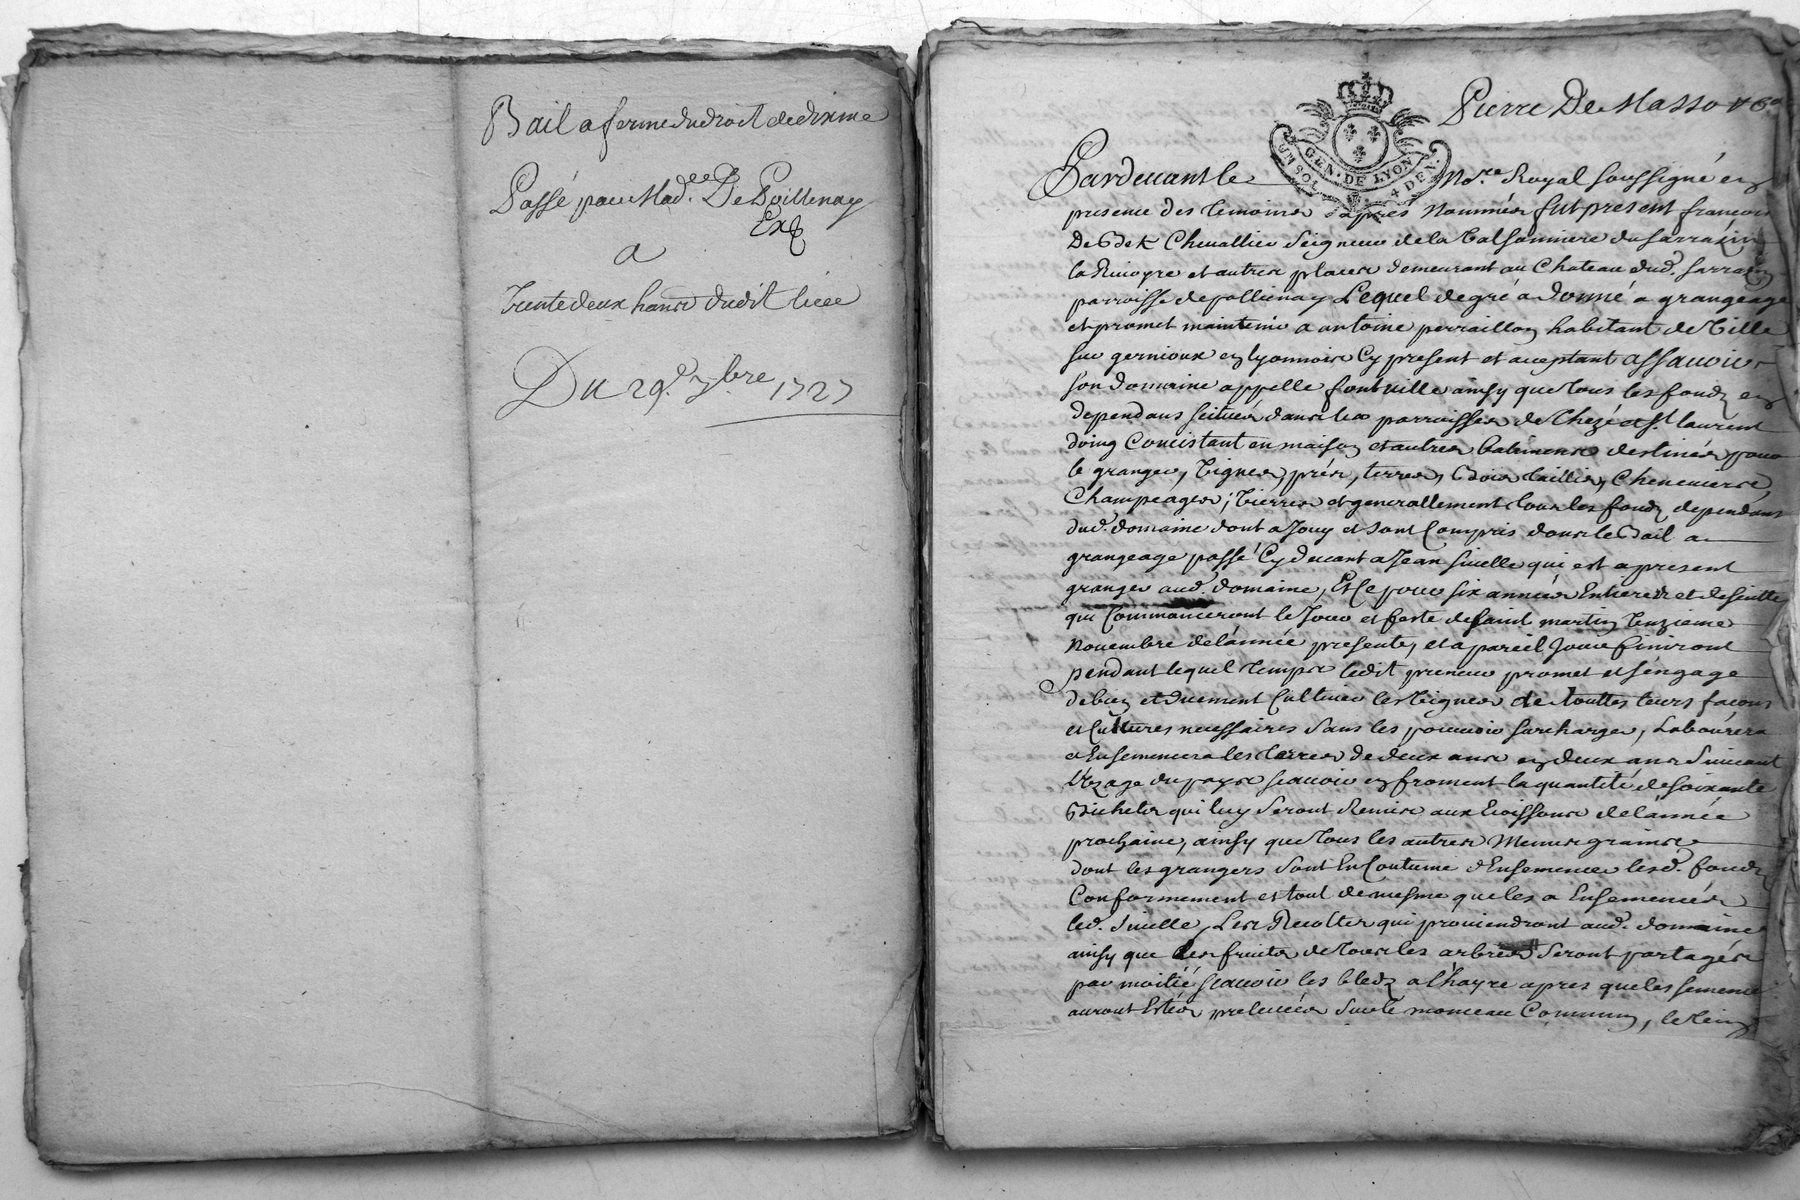 Bail a ferme du droit de dixme
Passé par Mad.lle De Poillenay
Exp
a
trente deux hans dudit lieu
Du 29.e 7.bre 1727
Pierre De Masso
GEN. DE LYON
UN SOL 4 DEN.
Pardevant le No.re Royal soussigné en
presence des temoins apres nommés fut present françois
De Chevallier Seigneur de la du sarrazin
la et autres places demeurant au Chateau dud. sarrazin
parroisse de pollienay Lequel de gré a donné a grangeage
et promet maintenir a antoine perraillon habitant de Ville
sur gernioux en lyonnois Cy present et aceptant assavoir
son domaine appelle fontville ainsy que tous les fondz en
dependans scitués dans les parroisses de Chezé et St. laurent
doing Concistant en maison et autres batimens destinés pour
le granger, Vignes, prés, terres, Bois taillis, Chenevieres,
Champeages, Vierres et generallement tous les fondz dependans
dud. domaine dont a Jouy et sont Compris dans le Bail a
grangeage passé Cy devant a Jean suelle qui est a present
granger aud. domaine, Et Ce pour six années Entieres et de suitte
qui Commanceront le Jour et feste de saint martin Unzieme
Novembre de lannée presente, et a pareil Jour finiront
pendant lequel temps ledit preneur promet et s'engage
de bien et duement Cultiver les Vignes de touttes leurs facons
et Cultures necessaires sans les pouvoir surcharger, Labourera
et Ensemencera les terres de deux ans en deux ans Suivant
L'uzage du pays scavoir en froment la quantité de soixante
Bichets qui luy Seront Remis aux moissons de lannée
prochaine, ainsy que tous les autres Menus grains
dont les grangers Sont En Coutume d'Ensemencer lesd. fondz
Conformement et tout de mesme que les a Ensemencés
led. suelle, Les Recoltes qui proviendront aud. domaine
ainsy que des fruits de tous les arbres Seront partagés
par moitié scavoir les bledz a l'hayre apres que les semences
auront Estés prelevées sur le monceau Commun, le Vin